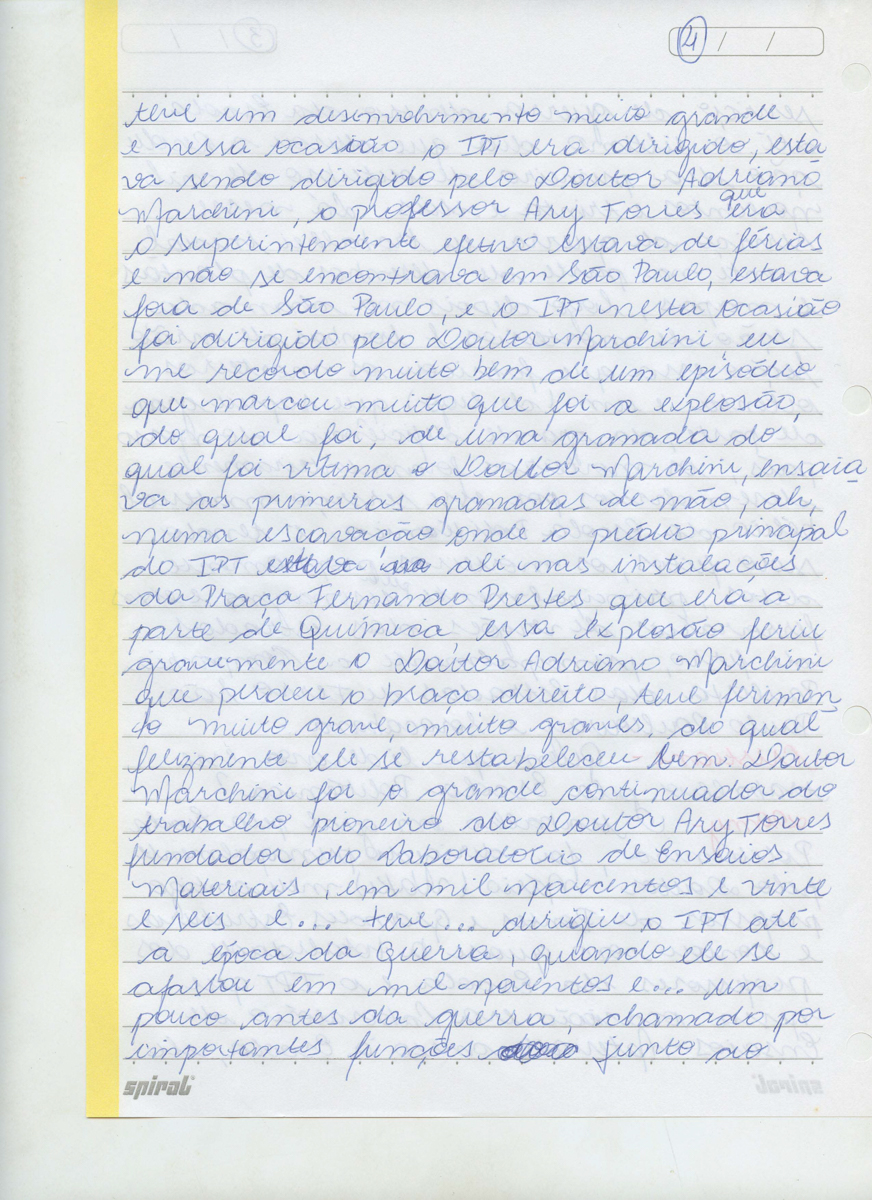 4 / /
teve um desenvolvimento muito grande
e nessa ocasião o IPT era dirigido, esta
va sendo dirigido pelo Doutor Adriano
Marchini, o professor Ary Torres que era
o superintendente efetivo estava de férias
e não se encontrava em São Paulo, estava
fora de São Paulo, e o IPT nesta ocasião
foi dirigido pelo Doutor Marchini, eu
me recordo muito bem de um episódio
que marcou muito que foi a explosão,
do qual foi, de uma granada do
qual foi vítima o Doutor Marchini, ensaia
va as primeiras granadas de mão, ah,
numa escavação onde o prédio principal
do IPT ali nas instalações
da Praça Fernando Prestes, que era a
parte de Química, essa explosão feriu
gravemente o Doutor Adriano Marchini
que perdeu o braço direito, teve ferimen
to muito grave, muito graves, do qual
felizmente ele se restabeleceu bem. Doutor
Marchini foi o grande continuador do
trabalho pioneiro do Doutor Ary Torres
fundador do Laboratório de Ensaios
Materiais, em mil novecentos e vinte
e seis e... teve... dirigiu o IPT até
a época da Guerra, quando ele se
afastou em mil noventos e... um
pouco antes da guerra, chamado por
importantes funções junto ao
spiral